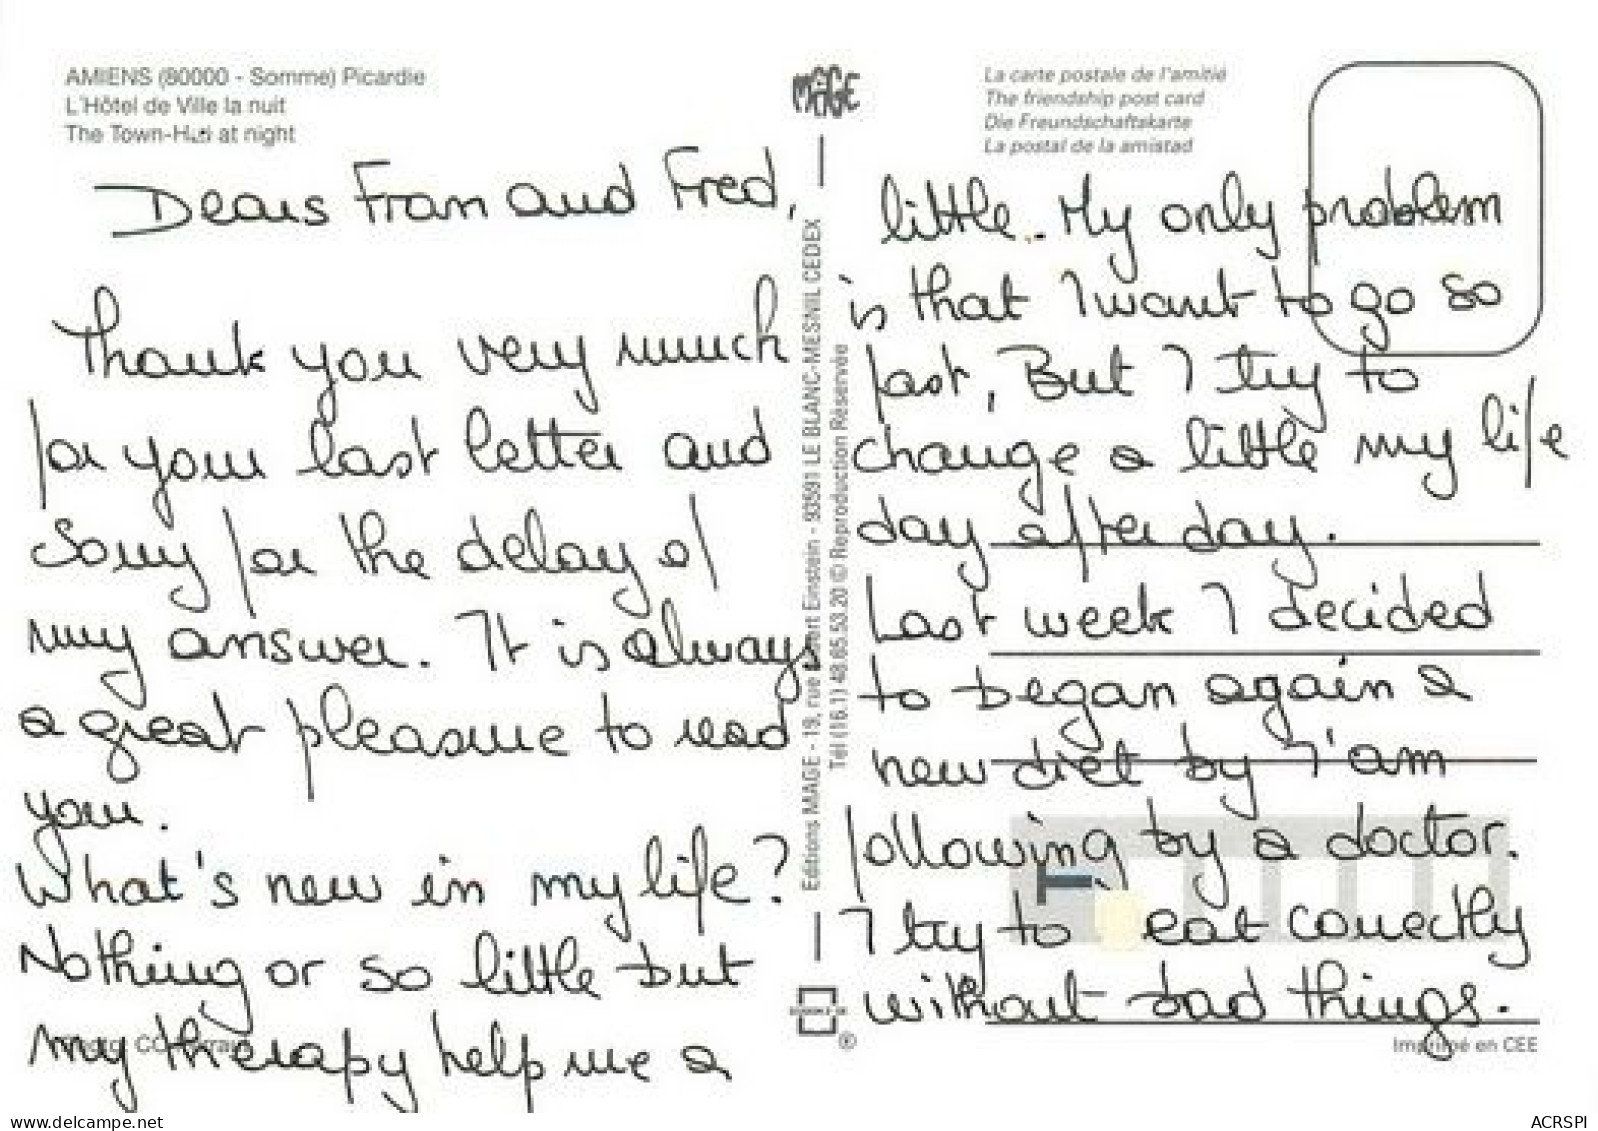 AMIENS (80000 - Somme) Picardie
L'Hôtel de Ville la nuit
The Town-Hall at night
Dears Fran and Fred,
Thank you very much
for your last letter and
sorry for the delay of
my answer. It is always
a great pleasure to read
your.
What's new in my life?
Nothing or so little but
my therapy help me a
MAGE
Editions MAGE - 19, rue Albert Einstein - 93591 LE BLANC-MESNIL CEDEX
Tél (16.1) 48.65.53.20 © Reproduction Réservée
®
La carte postale de l'amitié
The friendship post card
Die Freundschaftskarte
La postal de la amistad
little. My only problem
is that I want to go so
fast, But I try to
change a little my life
day after day.
Last week I decided
to began again a
new diet by I'am
following by a doctor.
I try to eat correctly
without bad things.
Imprimé en CEE
www.delcampe.net
ACRSPI